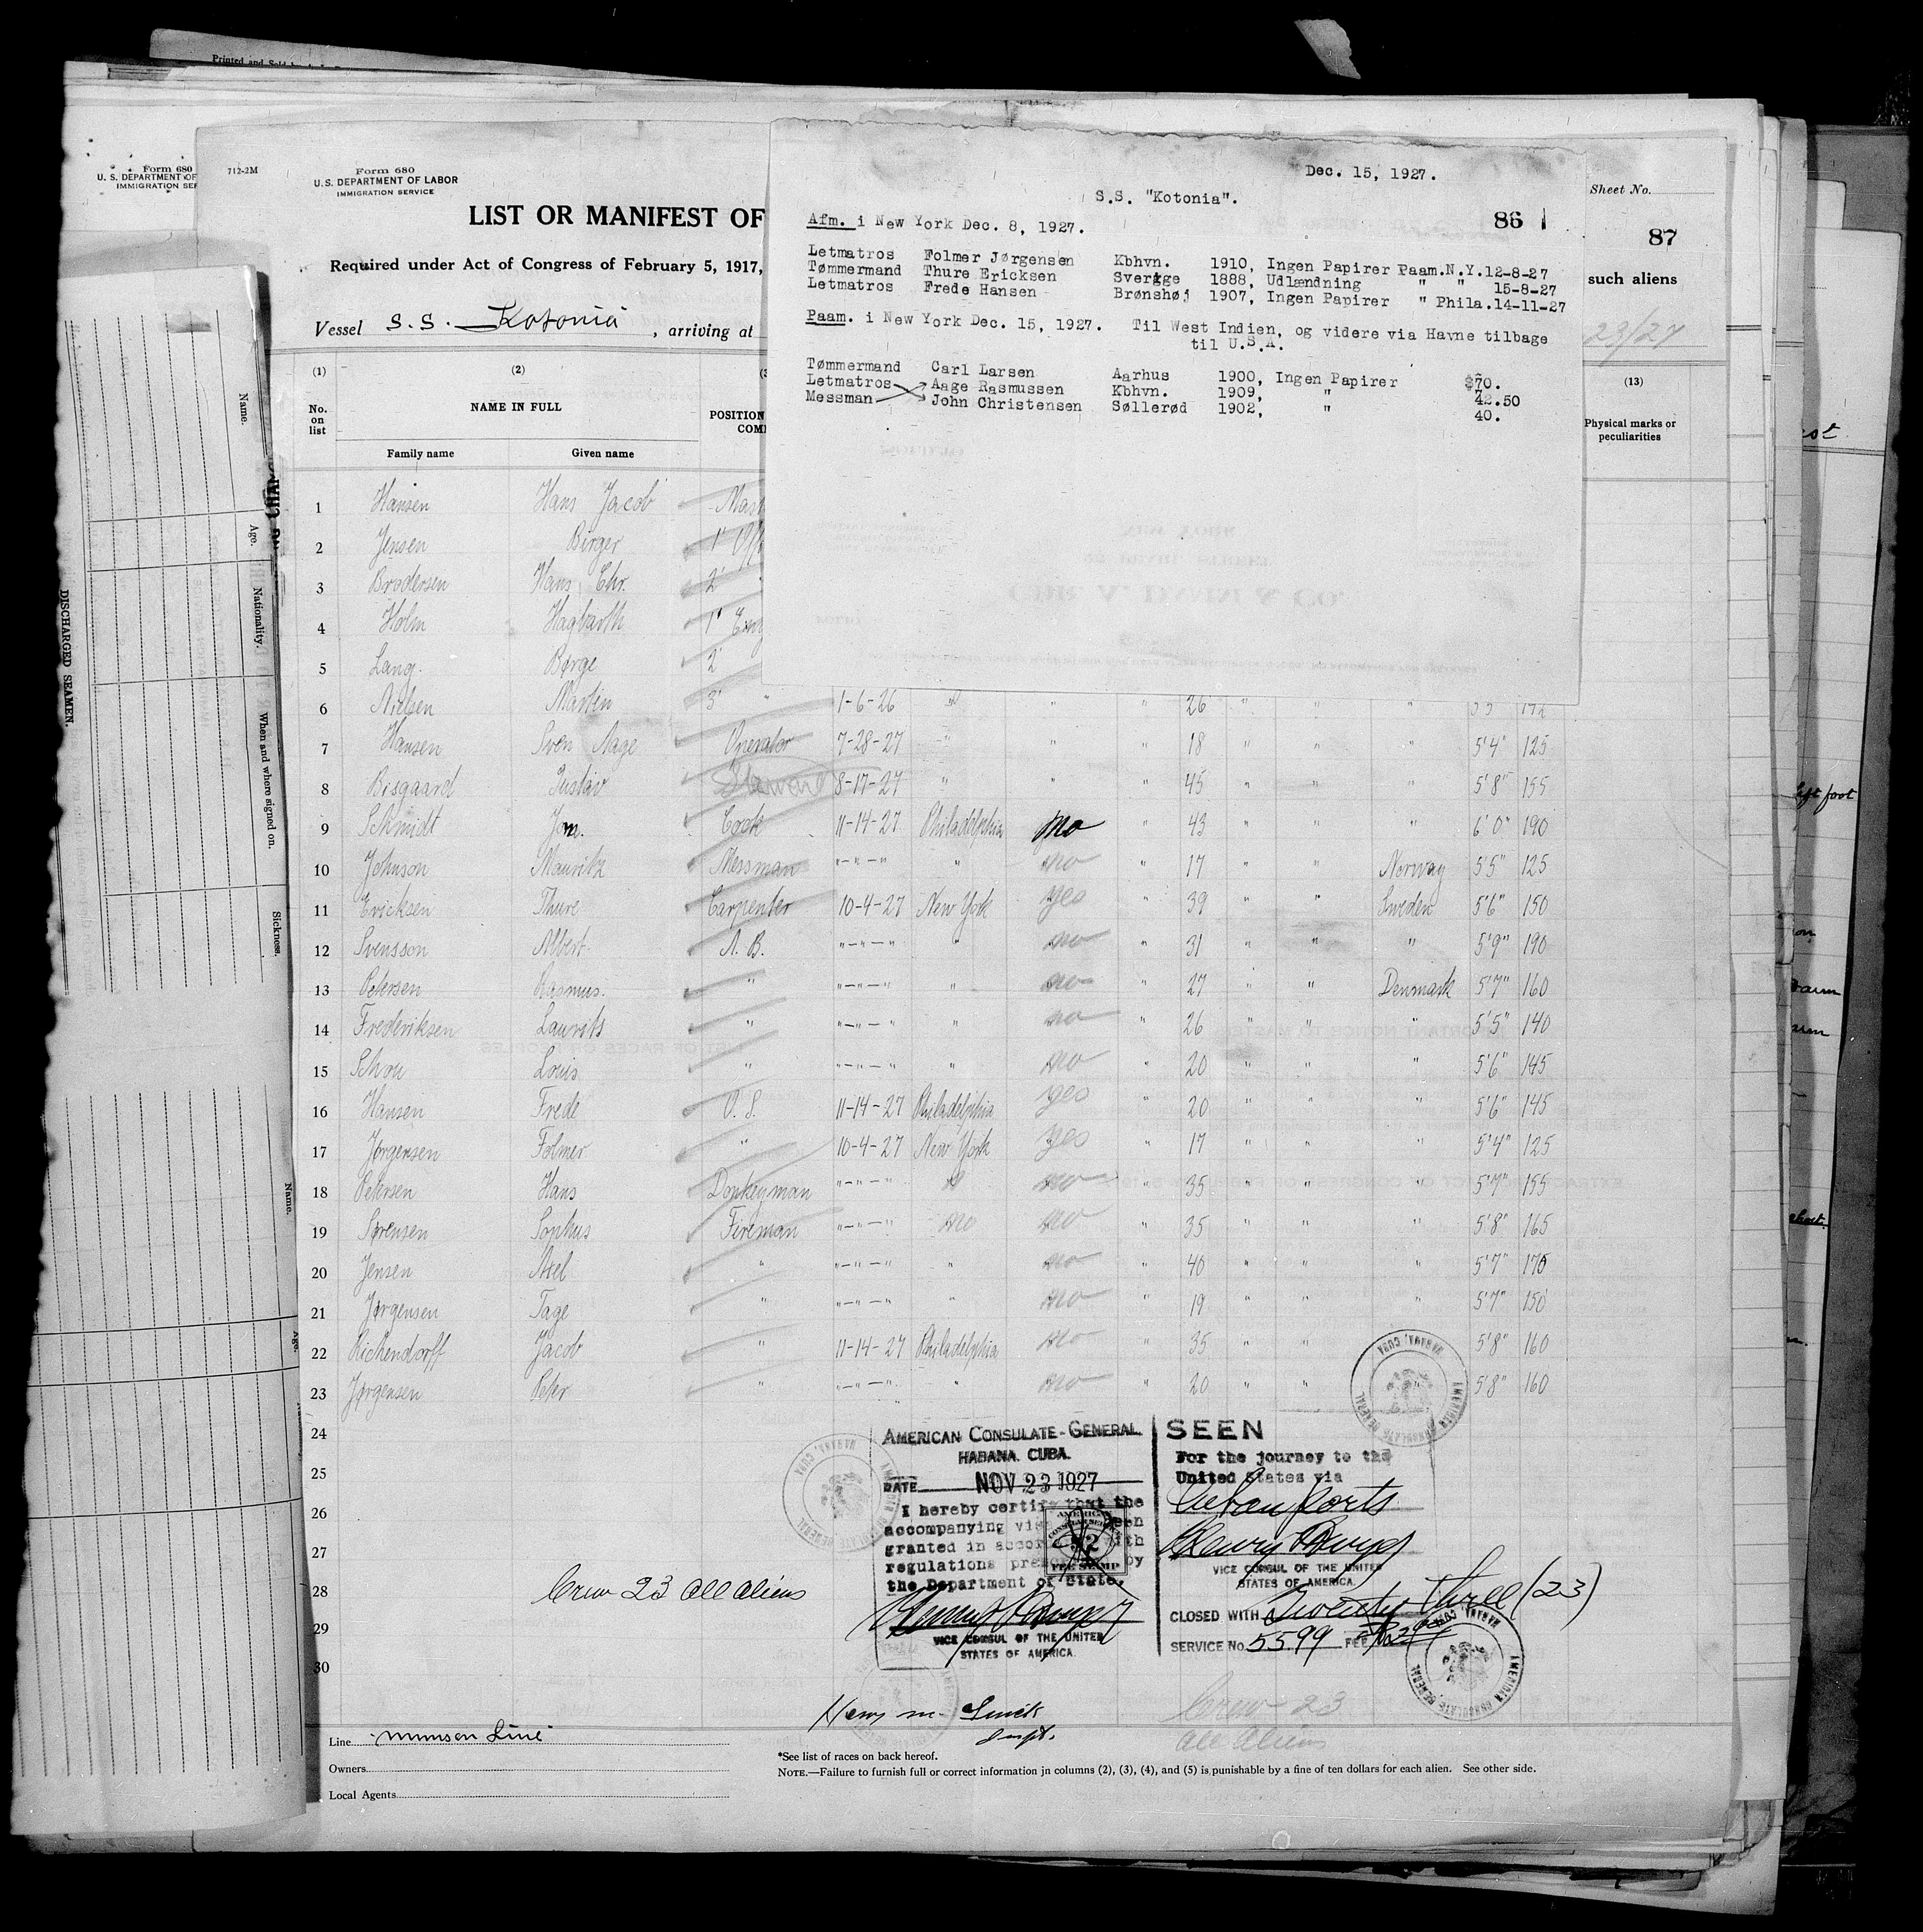 Form 680
U. S. DEPARTMENT OF
IMMIGRATION SER
712-2M
Form 680
U.S. DEPARTMENT OF LABOR
IMMIGRATION SERVICE
LIST OR MANIFEST OF
Required under Act of Congress of February 5, 1917,
such aliens
Sheet No.
87
Vessel S.S. Kotonia, arriving at
23/27
Dec. 15, 1927.
S.S. "Kotonia".
86
Afm. i New York Dec. 8, 1927.
Letmatros Folmer Jørgensen Kbhvn. 1910, Ingen Papirer Paam.N.Y.12-8-27
Tømmermand Thure Ericksen Sverige 1888, Udlændning " " 15-8-27
Letmatros Frede Hansen Brønshøj 1907, Ingen Papirer " Phila.14-11-27
Paam. i New York Dec. 15, 1927. Til West Indien, og videre via Havne tilbage
til U.S.A.
Tømmermand Carl Larsen Aarhus 1900, Ingen Papirer $70.
Letmatros Aage Rasmussen Kbhvn. 1909, " 42.50
Messman John Christensen Søllerød 1902, " 40.
(1) (2) (3 (13)
No. on list
NAME IN FULL
POSITION COM
Physical marks or peculiarities
Family name Given name
1 Hansen Hans Jacob Mast
2 Jensen Birger 1' Off
3 Brodersen Hans Chr. 2'
4 Holm Hagbarth 1' Eng
5 Lang. Børge 2'
6 Nielsen Martin 3' " 1-6-26 " " " 26 " " "
7 Hansen Sven Aage Operator 7-28-27 " " " 18 " " " 5'4" 125
8 Bisgaard Gustav Steward 8-17-27 " " " 45 " " " 5'8" 155
9 Schmidt Cook 11-14-27 Philadelphia no " 43 " " " 6'0" 190
10 Johnson Mauritz Messman "-"-" " no " 17 " " Norway 5'5" 125
11 Ericksen Thure Carpenter 10-4-27 New York yes " 39 " " Sweden 5'6" 150
12 Svensson Albert. A. B. "-"-" " no " 31 " " " 5'9" 190
13 Petersen Rasmus. " "-"-" " no " 27 " " Denmark 5'7" 160
14 Frederiksen Laurits " "-"-" " no " 26 " " " 5'5" 140
15 Schou Louis " "-"-" " no " 20 " " " 5'6" 145
16 Hansen Frede O. S. 11-14-27 Philadelphia yes " 20 " " " 5'6" 145
17 Jørgensen Folmer " 10-4-27 New York yes " 17 " " " 5'4" 125
18 Petersen Hans Donkeyman "-"-" " no " 35 " " " 5'7" 155
19 Sørensen Sophus Fireman "-"-" no no " 35 " " " 5'8" 165
20 Jensen Axel " "-"-" " no " 40 " " " 5'7" 170
21 Jørgensen Tage " "-"-" " no " 19 " " " 5'7" 150
22 Richendorff Jacob " 11-14-27 Philadelphia no " 35 " " 5'8" 160
23 Jørgensen Peter " "-"-" " no " 20 " " " 5'8" 160
24
25
26
27
28
29
30
AMERICAN CONSULATE-GENERAL
HABANA. CUBA.
DATE NOV 23 1927
I hereby certify that the
accompanying visa been
granted in accor with
regulations pre by
the Department of State.
VICE CONSUL OF THE UNITED
STATES OF AMERICA.
SEEN
For the journey to the
United States via
Cuban ports
VICE CONSUL OF THE UNITED
STATES OF AMERICA.
CLOSED WITH Twenty three (23)
SERVICE No. 5599 FEE
AMERICAN CONSULATE GENERAL HABANA, CUBA
Crew 23 all aliens
Crew 23
all aliens
Line Munson Line
Owners
Local Agents
*See list of races on back hereof.
NOTE.—Failure to furnish full or correct information in columns (2), (3), (4), and (5) is punishable by a fine of ten dollars for each alien. See other side.
DISCHARGED SEAMEN.
Name.
Age.
Nationality.
When and where signed on.
Sickness.
Name.
Age.
left foot